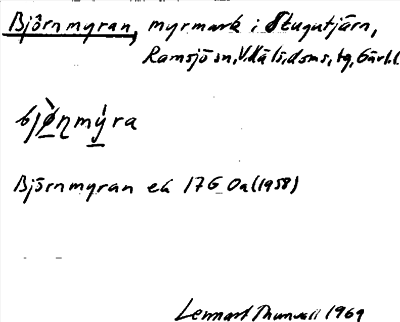 Björnmyran, myrmark i Stugutjärn,
Ramsjö sn, V. Häls. doms. tg, Gävl. l.
bjø̀ɳmýra
Björnmyran ek 17G 0a (1958)
Lennart Thunvall 1969